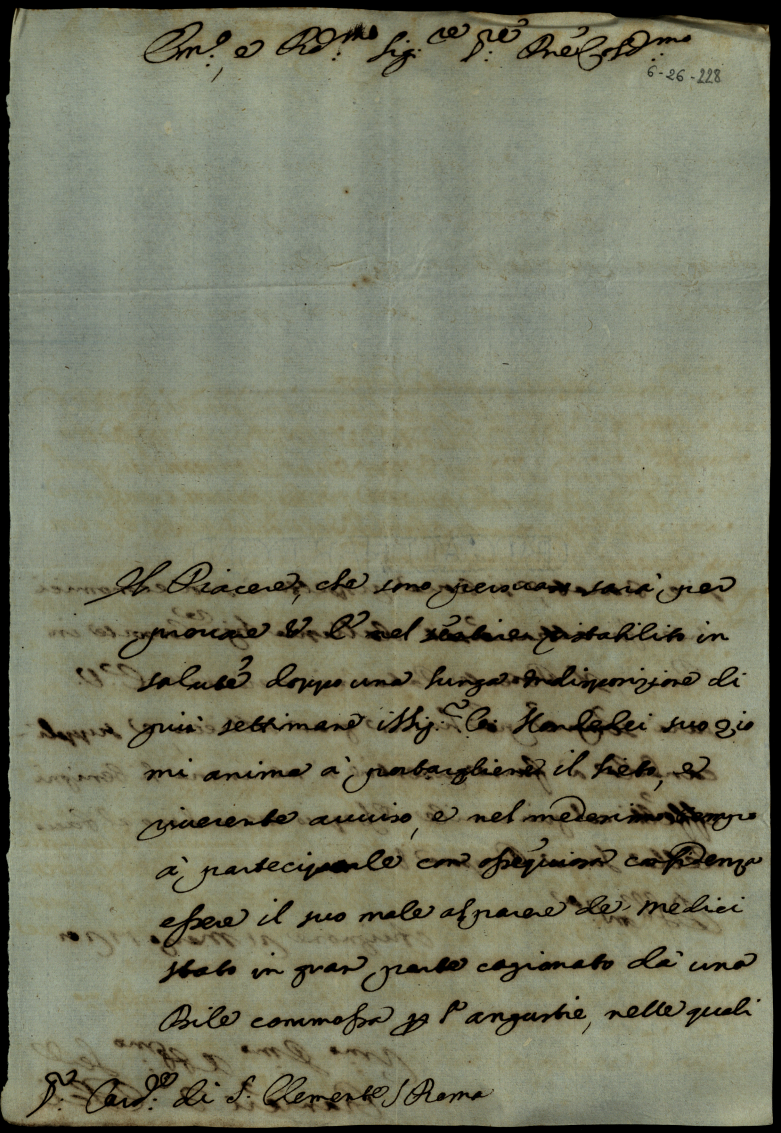 Em.º, e Rd.mo Sig.re P.re Pne Col.mo
6-26-228
Il Piacere, che sono per sarà per
provare V. E. nel ristabilito in
salute doppo una lunga indisposizione di
più settimane il Sig.r Co: suo zio
mi anima à portargliene il lieto, e
riverente avviso, e nel medesimo tempo
à participarle con ossequiosa confidenza
essere il suo male al parere de Medici
stato in gran parte cagionato dà una
Bile commossa p l'angustie, nelle quali
S.r Card.e di S. Clemente / Roma